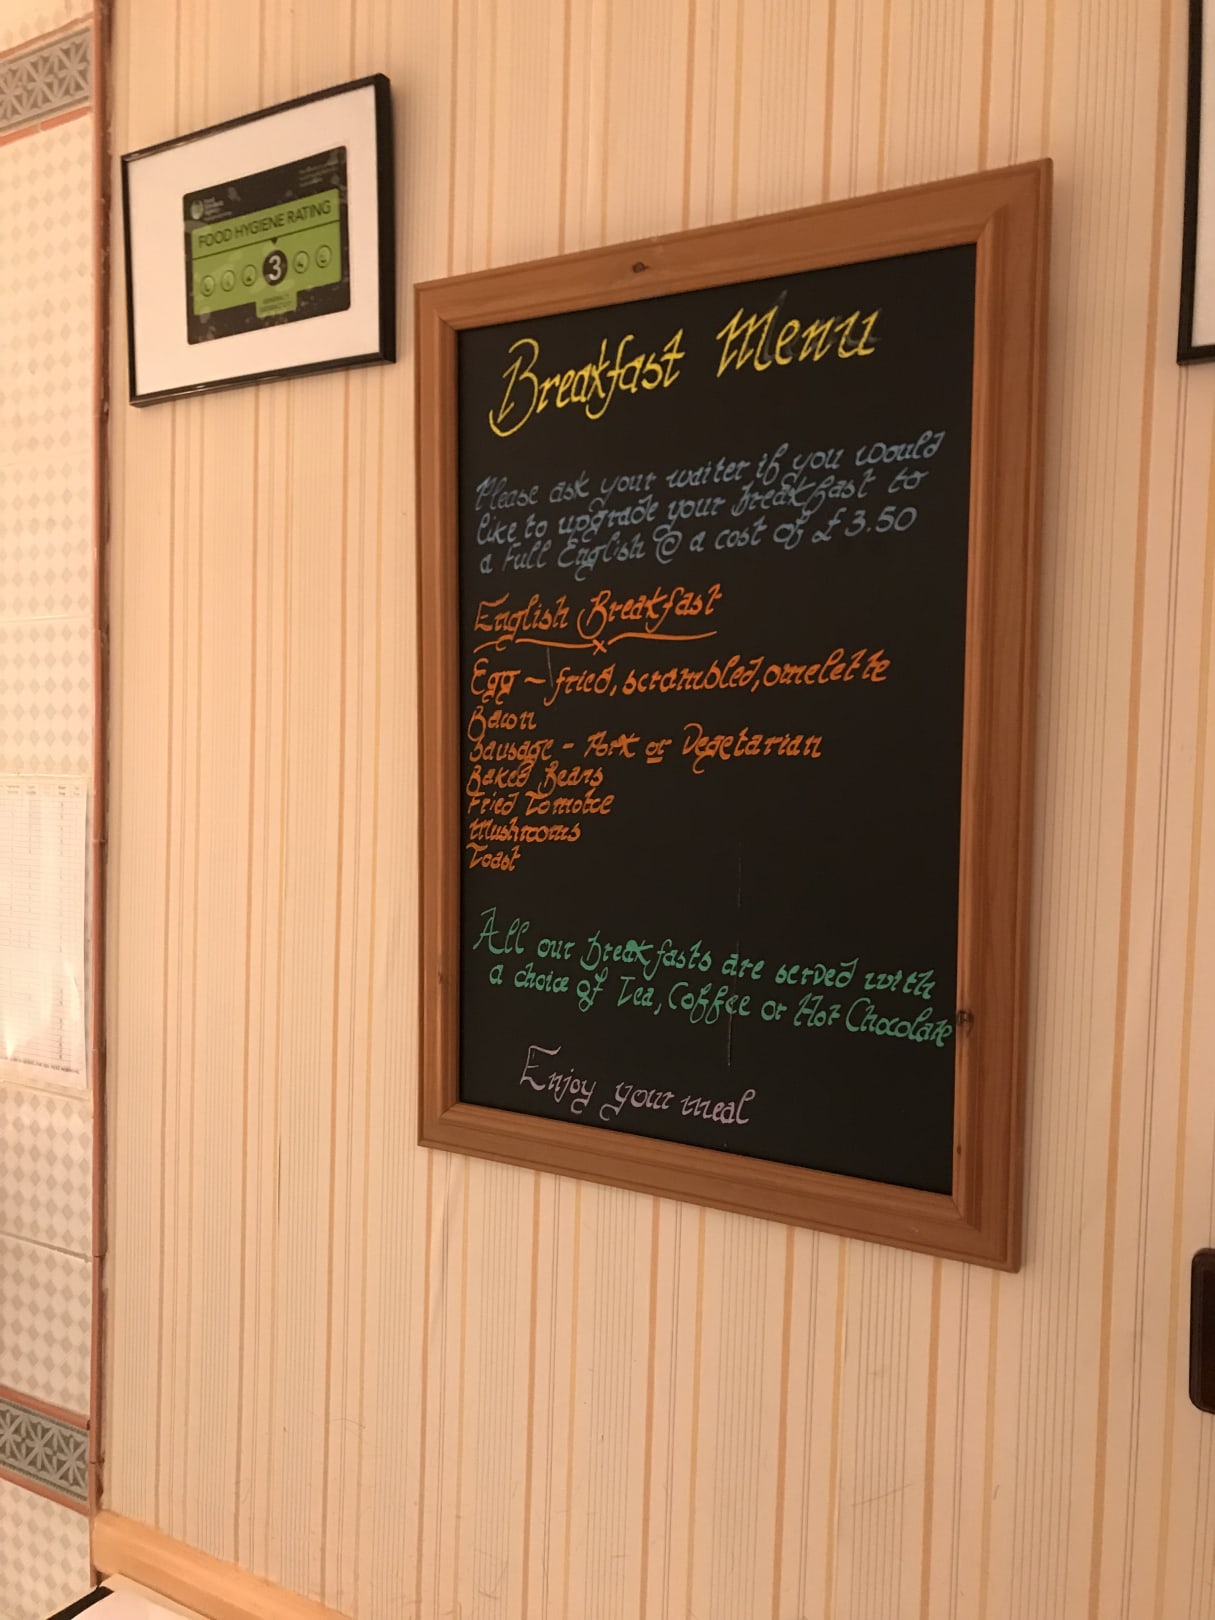 Food
Standards
Agency
FOOD HYGIENE RATING
3
GENERALLY
SATISFACTORY
Breakfast Menu
Please ask your waiter if you would
like to upgrade your breakfast to
a Full English @ a cost of £3.50
English Breakfast
Egg ~ fried, scrambled, omelette
Bacon
Sausage - Pork or Vegetarian
Baked Beans
Fried Tomatoe
Mushrooms
Toast
All our breakfasts are served with
a choice of Tea, Coffee or Hot Chocolate
Enjoy your meal